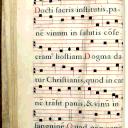 Docti sacris institutis, pa-
nē vinum in salutis cōse-
cram⁹ hostiam. Dogma da-
tur Christianis, quod in car
nē trāsit panis, & vinū in
sanguinē. Quod non